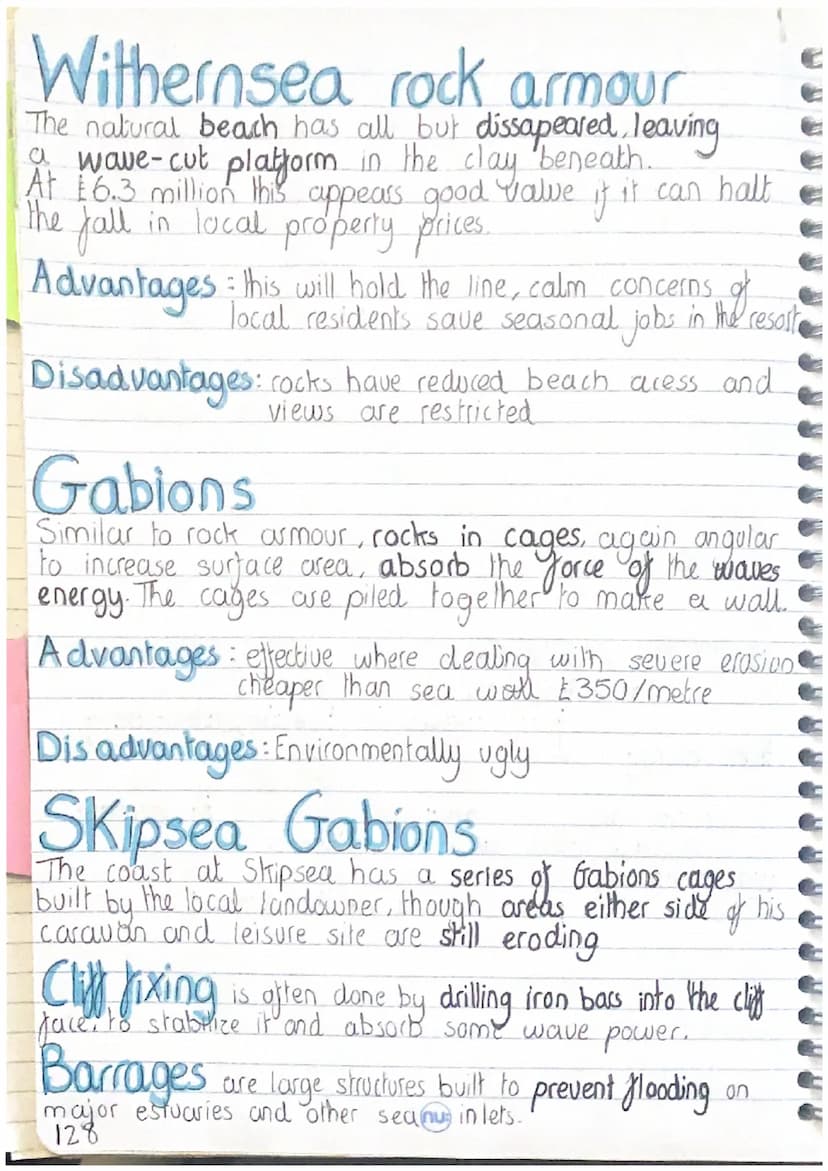 Withernsea rock armour
The natural beach has all but dissapeared, leaving
a wave-cut platform in the clay beneath.
At £6.3 million this appears good value if it can halt
the fall in local property prices.
Advantages: this will hold the line, calm concerns of
local residents save seasonal jobs in the resort
Disadvantages: rocks have reduced beach acess and
views are restricted
Gabions
Similar to rock armour, rocks in cages, again angular
to increase surface area, absorb the force of the waves
energy. The cages are piled together to make a wall.
Advantages: effective where dealing with severe erosion
cheaper than sea wall £350/metre
Disadvantages: Environmentally ugly
Skipsea Gabions
The coast at Skipsea has a series of Gabions cages
built by the local landowner, though areas either side of his
caravan and leisure site are still eroding
Cliff fixing is often done by drilling iron bars into the cliff
face, to stabilize it and absorb some wave power.
Barrages are large structures built to prevent flooding on
major estuaries and other sea inlets.
nu
128